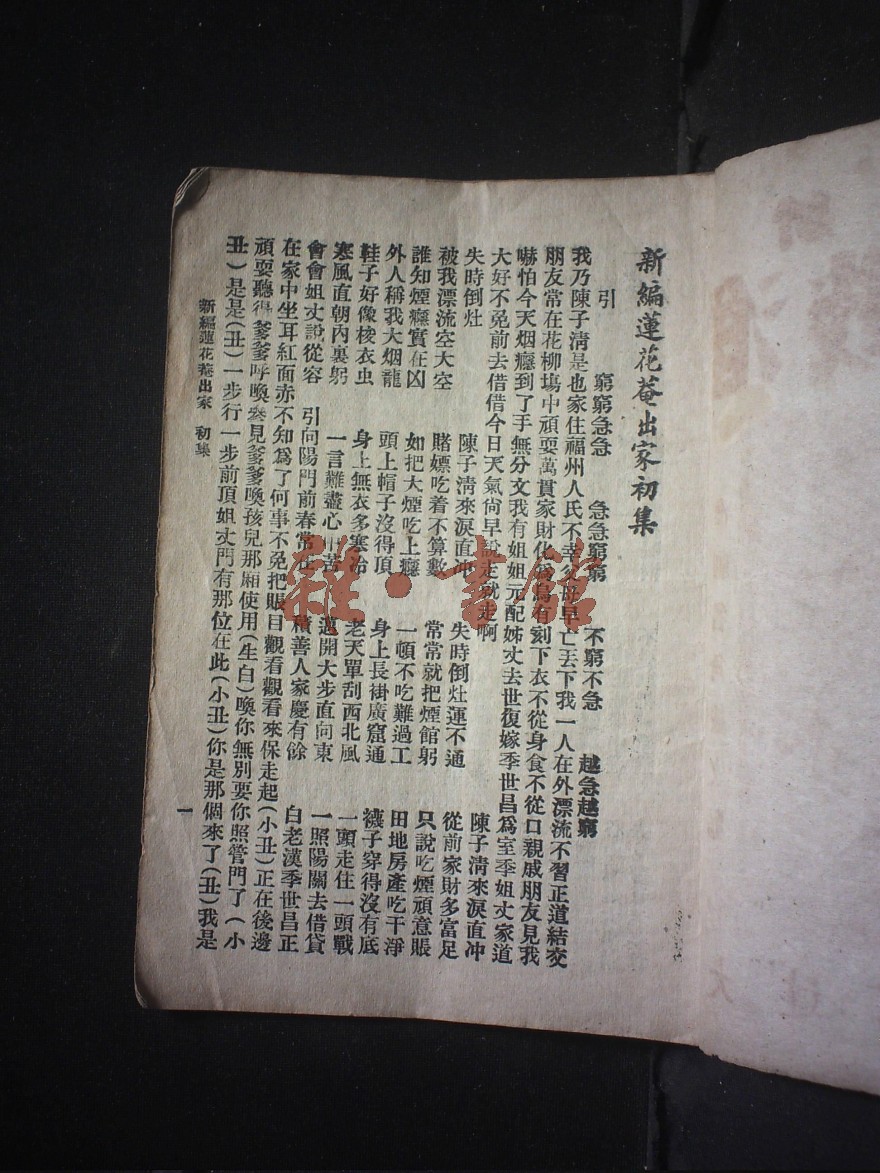 新編蓮花菴出家初集
引　窮窮急急　急急窮窮　不窮不急　越急越窮
我乃陳子淸是也家住福州人氏不幸父母早亡丟下我一人在外漂流不習正道結交
朋友常在花柳塲中頑耍萬貫家財化爲烏有刻下衣不從身食不從口親戚朋友見我
嚇怕今天烟癮到了手無分文我有姐姐元配姊丈去世復嫁季世昌爲室季姐丈家道
大好不免前去借借今日天氣尙早說走就走啊
失時倒灶　陳子淸來淚直冲　失時倒灶運不通　陳子淸來淚直冲
被我漂流空大空　賭嫖吃着不算數　常常就把煙館躬　從前家財多富足
誰知煙癮實在凶　如把大煙吃上癮　一頓不吃難過工　只說吃煙頑意賬
外人稱我大烟龍　頭上帽子沒得頂　身上長褂廣窟通　田地房產吃干淨
鞋子好像梭衣虫　身上無衣多寒冷　老天單刮西北風　襪子穿得沒有底
寒風直朝內裏躬　一言難盡心中苦　邁開大步直向東　一頭走住一頭戰
會會姐丈說從容　引向陽門前春常在　積善人家慶有餘　一照陽關去借貸
白老漢季世昌正
在家中坐耳紅面赤不知爲了何事不免把賬目觀看觀看來保走起(小丑)正在後邊
頑耍聽得爹爹呼喚叅見爹爹喚孩兒那廂使用(生白)喚你無別要你照管門了(小
丑)是是(丑)一步行一步前頂姐丈門有那位在此(小丑)你是那個來了(丑)我是
新編蓮花菴出家　初集
一
雜·書館